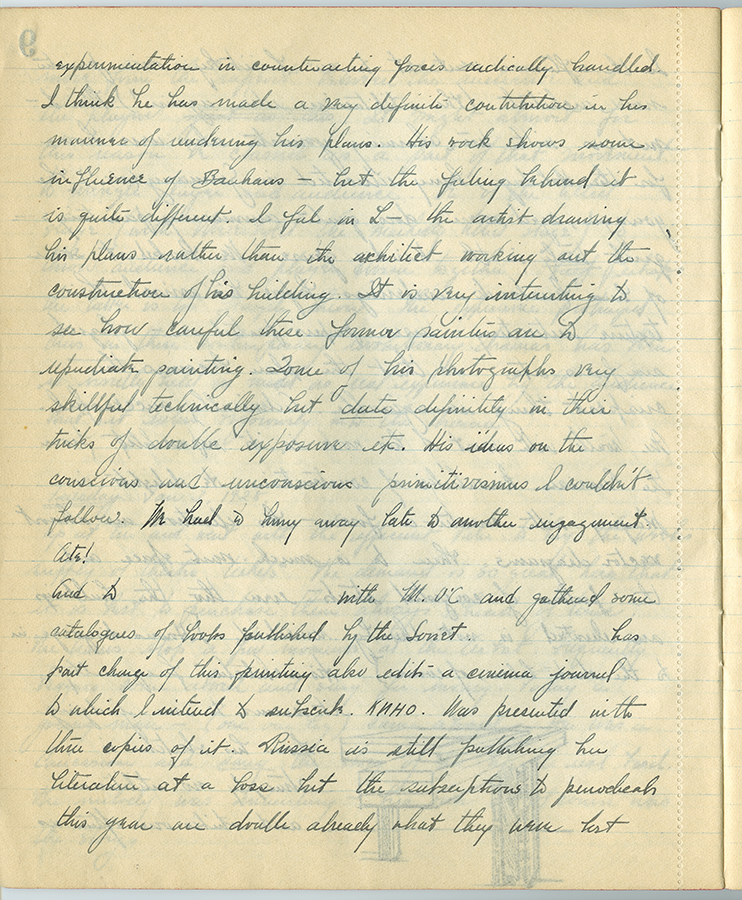 9
experimentation in counteracting forces radically handled.
I think he has made a very definite contribution in his
manner of rendering his plans. His work shows some
influence of Bauhaus – but the feeling behind it
is quite different. I feel in L– the artist drawing
his plans rather than the architect working out the
construction of his building. It is very interesting to
see how careful these former painters are to
repudiate painting. Some of his photographs very
skillful technically but date definitely in their
tricks of double exposure etc. His ideas on the
conscious and unconscious primitivisms I couldn't
follow. We had to hurry away late to another engagement.
Ate!
And to with M. O'C and gathered some
catalogues of books published by the Soviet. has
part charge of this printing also edits a cinema journal
to which I intend to subscribe. КИНО. Was presented with
three copies of it. Russia is still publishing her
literature at a loss but the subscriptions to periodicals
this year are double already what they were last